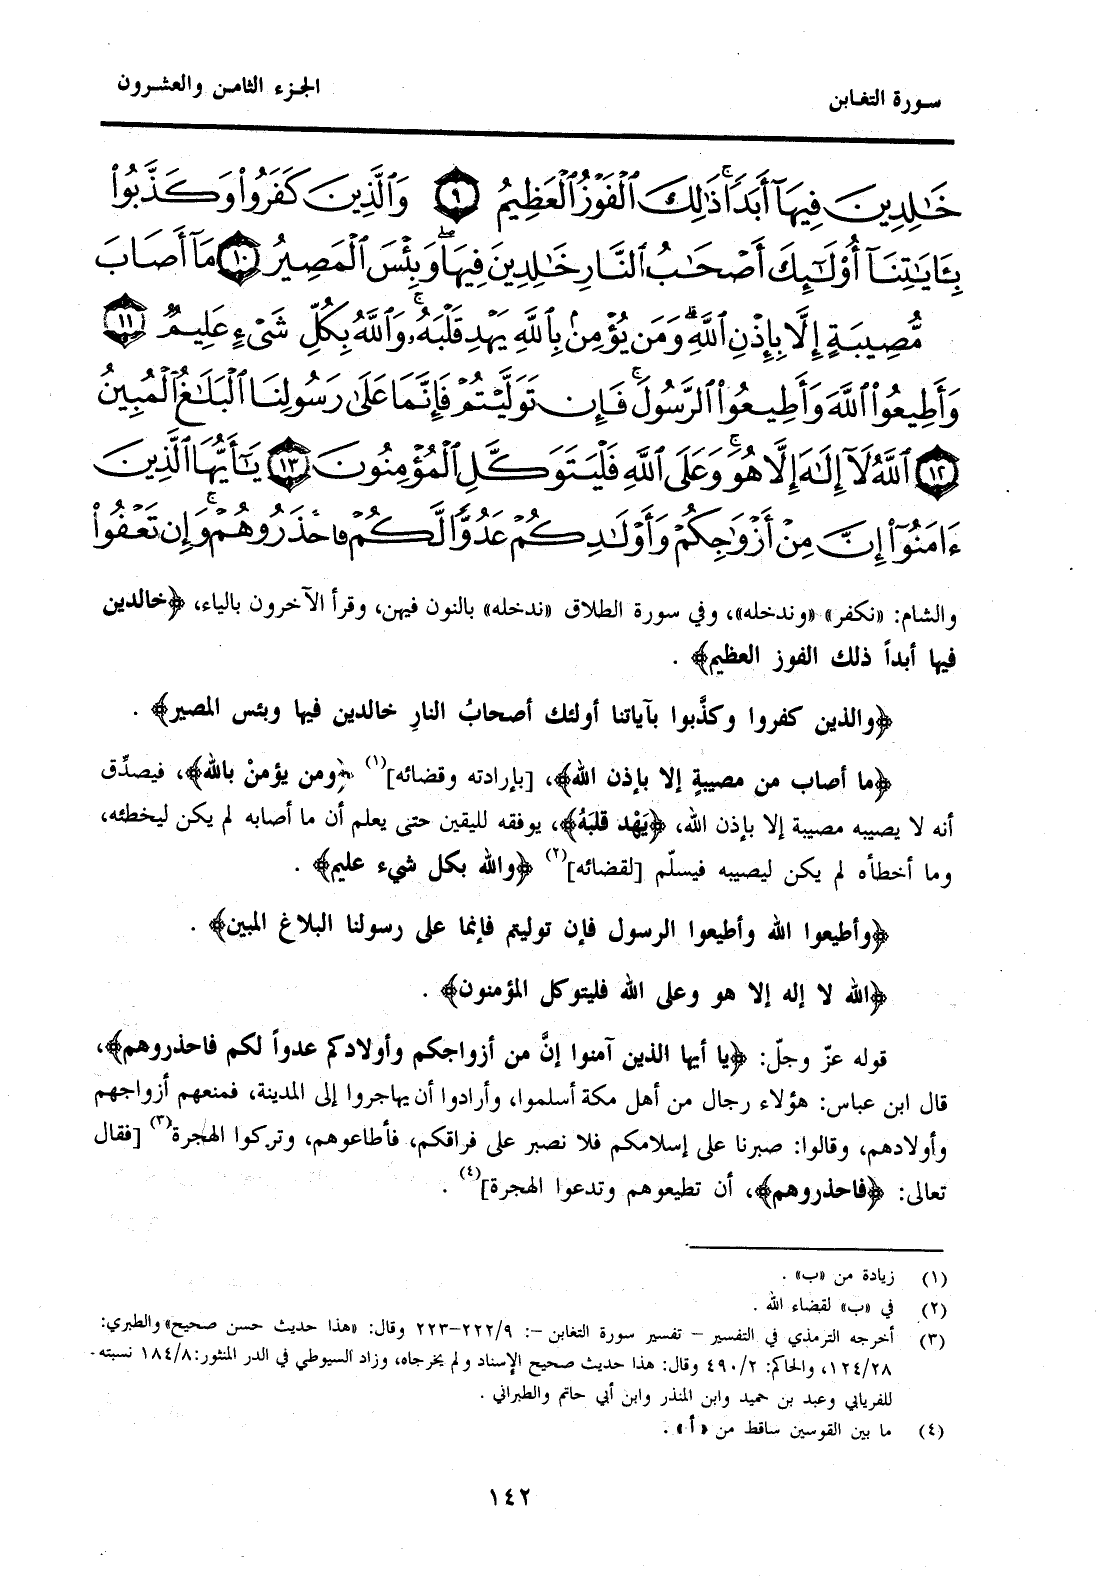 سورة التغابن
الجزء الثامن والعشرون
خَٰلِدِينَ فِيهَآ أَبَدًا ۚ ذَٰلِكَ ٱلْفَوْزُ ٱلْعَظِيمُ ٩ وَٱلَّذِينَ كَفَرُوا۟ وَكَذَّبُوا۟
بِـَٔايَٰتِنَآ أُو۟لَٰٓئِكَ أَصْحَٰبُ ٱلنَّارِ خَٰلِدِينَ فِيهَا ۖ وَبِئْسَ ٱلْمَصِيرُ ١٠ مَآ أَصَابَ
مِن مُّصِيبَةٍ إِلَّا بِإِذْنِ ٱللَّهِ ۗ وَمَن يُؤْمِنۢ بِٱللَّهِ يَهْدِ قَلْبَهُۥ ۚ وَٱللَّهُ بِكُلِّ شَىْءٍ عَلِيمٌ ١١
وَأَطِيعُوا۟ ٱللَّهَ وَأَطِيعُوا۟ ٱلرَّسُولَ ۚ فَإِن تَوَلَّيْتُمْ فَإِنَّمَا عَلَىٰ رَسُولِنَا ٱلْبَلَٰغُ ٱلْمُبِينُ
١٢ ٱللَّهُ لَآ إِلَٰهَ إِلَّا هُوَ ۚ وَعَلَى ٱللَّهِ فَلْيَتَوَكَّلِ ٱلْمُؤْمِنُونَ ١٣ يَٰٓأَيُّهَا ٱلَّذِينَ
ءَامَنُوٓا۟ إِنَّ مِنْ أَزْوَٰجِكُمْ وَأَوْلَٰدِكُمْ عَدُوًّا لَّكُمْ فَٱحْذَرُوهُمْ ۚ وَإِن تَعْفُوا۟
والشام: «نكفر» «وندخله»، وفي سورة الطلاق «ندخله» بالنون فيهن، وقرأ الآخرون بالياء، ﴿خالدين
فيها أبداً ذلك الفوز العظيم﴾ .
﴿والذين كفروا وكذَّبوا بآياتنا أولئك أصحابُ النارِ خالدين فيها وبئس المصير﴾ .
﴿ما أصاب من مصيبةٍ إلا بإذن الله﴾، [بإرادته وقضائه](١) ﴿ومن يؤمنْ بالله﴾، فيصدِّق
أنه لا يصيبه مصيبة إلا بإذن الله، ﴿يَهْد قلبَهُ﴾، يوفقه لليقين حتى يعلم أن ما أصابه لم يكن ليخطئه،
وما أخطأه لم يكن ليصيبه فيسلّم [لقضائه](٢) ﴿والله بكل شيء عليم﴾ .
﴿وأطيعوا الله وأطيعوا الرسول فإن توليتم فإنما على رسولنا البلاغ المبين﴾ .
﴿الله لا إله إلا هو وعلى الله فليتوكل المؤمنون﴾ .
قوله عزّ وجلّ: ﴿يا أيها الذين آمنوا إنَّ من أزواجكم وأولادكم عدواً لكم فاحذروهم﴾،
قال ابن عباس: هؤلاء رجال من أهل مكة أسلموا، وأرادوا أن يهاجروا إلى المدينة، فمنعهم أزواجهم
وأولادهم، وقالوا: صبرنا على إسلامكم فلا نصبر على فراقكم، فأطاعوهم، وتركوا الهجرة(٣) [فقال
تعالى: ﴿فاحذروهم﴾، أن تطيعوهم وتدعوا الهجرة](٤) .
(١) زيادة من «ب» .
(٢) في «ب» لقضاء الله .
(٣) أخرجه الترمذي في التفسير – تفسير سورة التغابن –: ٩/٢٢٢-٢٢٣ وقال: «هذا حديث حسن صحيح» والطبري:
٢٨/١٢٤، والحاكم: ٢/٤٩٠ وقال: هذا حديث صحيح الإسناد ولم يخرجاه، وزاد السيوطي في الدر المنثور: ٨/١٨٤ نسبته
للفريابي وعبد بن حميد وابن المنذر وابن أبي حاتم والطبراني .
(٤) ما بين القوسين ساقط من «أ» .
١٤٢